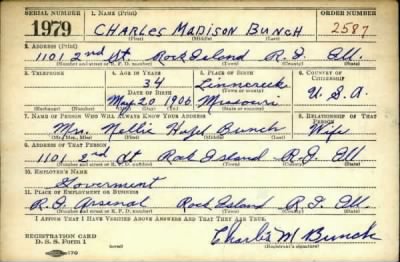 SERIAL NUMBER 1. NAME (Print) ORDER NUMBER
1979 CHARLES MADISON BUNCH 2587
(First) (Middle) (Last)
2. ADDRESS (Print)
1101 2nd St Rock Island R.I. Ill.
(Number and street or R. F. D. number) (Town) (County) (State)
3. TELEPHONE 4. AGE IN YEARS 5. PLACE OF BIRTH 6. COUNTRY OF CITIZENSHIP
34 Linncreek
DATE OF BIRTH (Town or county) U.S.A.
May 20 1906 Missouri
(Exchange) (Number) (Mo.) (Day) (Yr.) (State or country)
7. NAME OF PERSON WHO WILL ALWAYS KNOW YOUR ADDRESS 8. RELATIONSHIP OF THAT PERSON
Mrs. Nellie Hazel Bunch Wife
(Mr., Mrs., Miss) (First) (Middle) (Last)
9. ADDRESS OF THAT PERSON
1101 2nd St Rock Island R.I. Ill.
(Number and street or R. F. D. number) (Town) (County) (State)
10. EMPLOYER'S NAME
Goverment
11. PLACE OF EMPLOYMENT OR BUSINESS
R.I. Arsenal Rock Island R.I. Ill.
(Number and street or R. F. D. number) (Town) (County) (State)
I AFFIRM THAT I HAVE VERIFIED ABOVE ANSWERS AND THAT THEY ARE TRUE.
REGISTRATION CARD
D. S. S. FORM 1 (over) Charles M Bunch
(Registrant's signature)